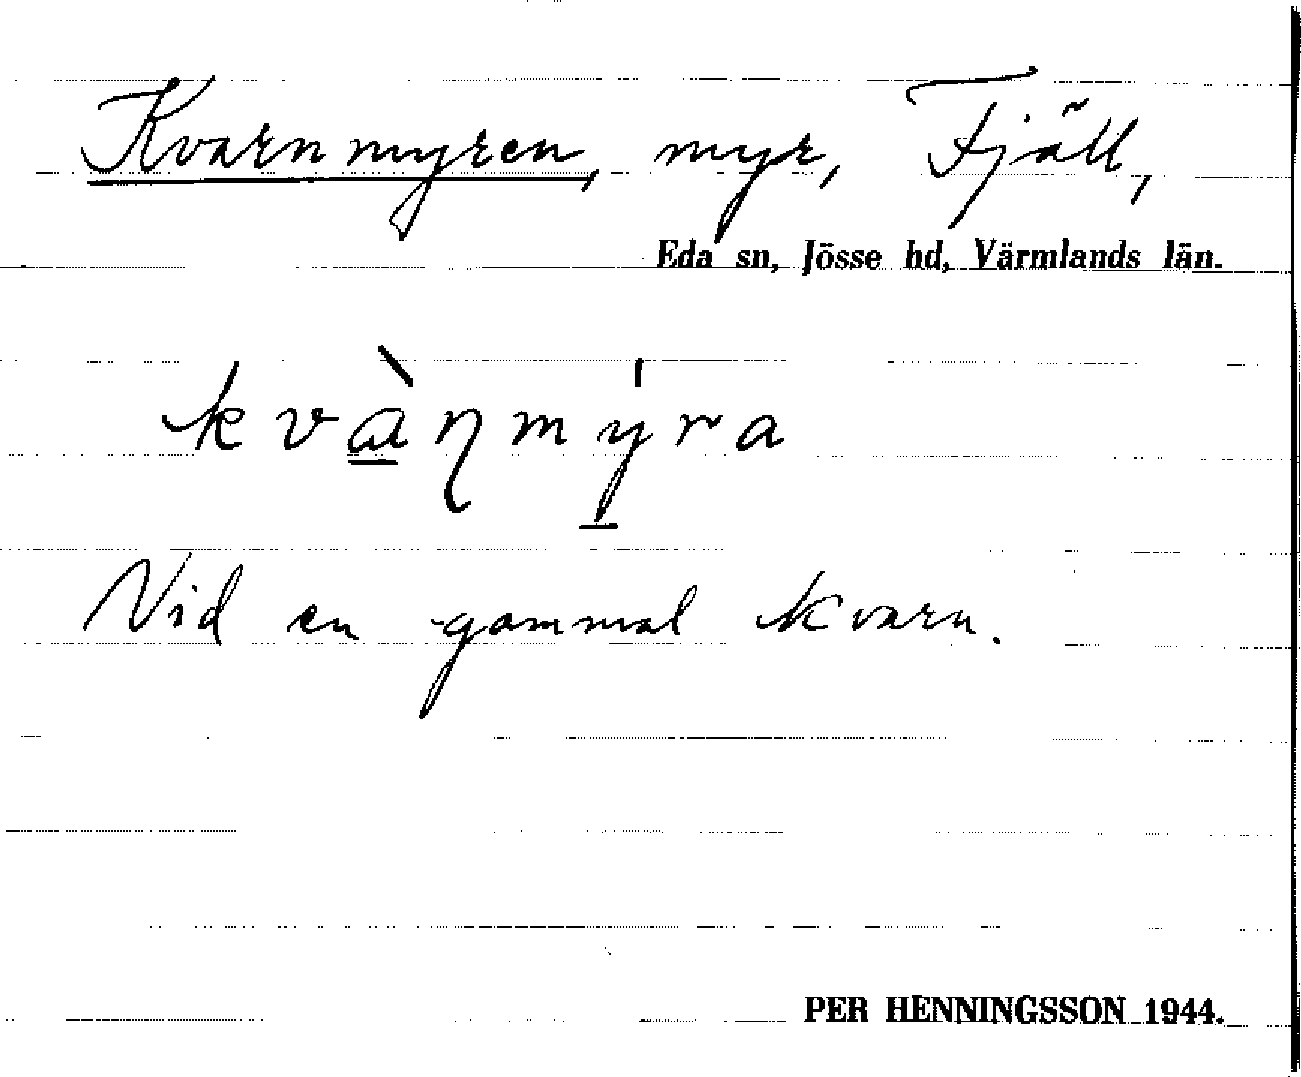 Kvarnmyren, myr, Fjäll,
Eda sn, Jösse hd, Värmlands län.
kvа̱̀ɳmy̱̍ra
Vid en gammal kvarn.
PER HENNINGSSON 1944.